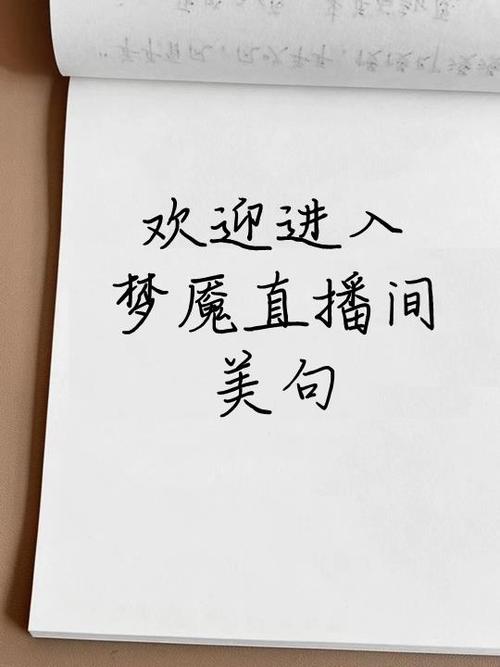 欢迎进入
梦魇直播间
美句